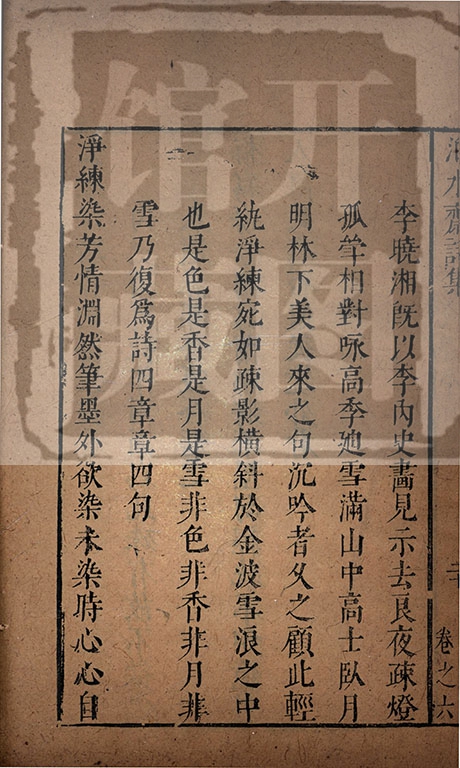 李曉湘旣以李內史畵見示去良夜疎燈
孤筆相對咏高季廸雪滿山中高士臥月
明林下美人來之句沉吟者乆之顧此輕
紈淨練宛如疎影橫斜於金波雪浪之中
也是色是香是月是雪非色非香非月非
雪乃復爲詩四章章四句
淨練染芳情淵然筆墨外欲染未染時心心自
卷之六